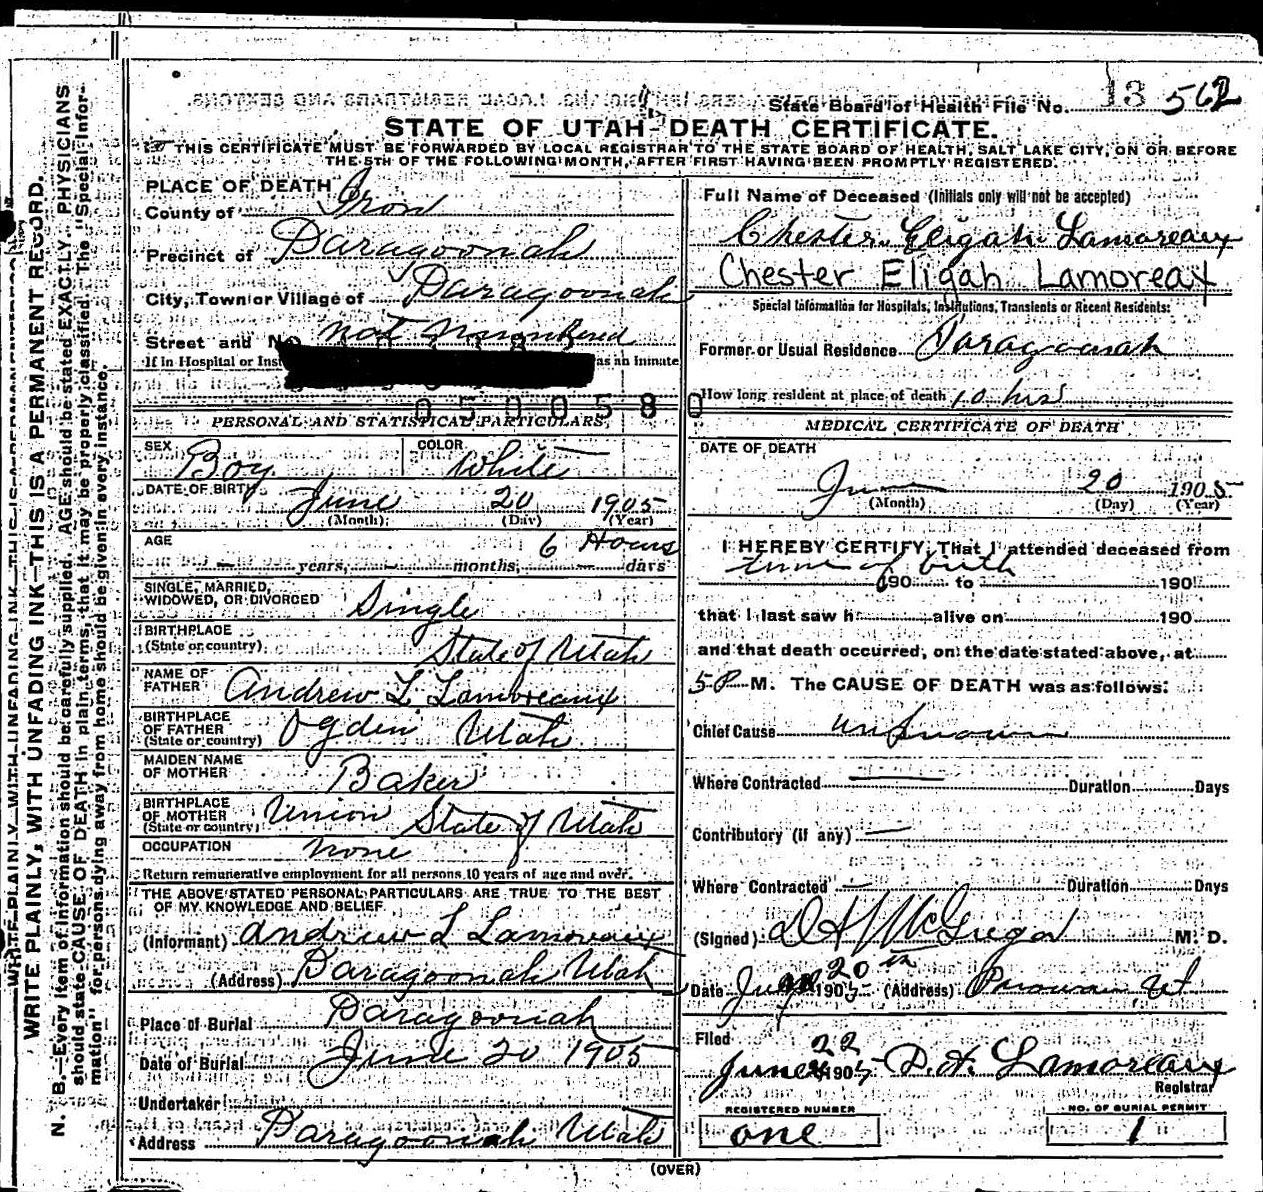 State Board of Health File No. 13 562
STATE OF UTAH-DEATH CERTIFICATE.
THIS CERTIFICATE MUST BE FORWARDED BY LOCAL REGISTRAR TO THE STATE BOARD OF HEALTH, SALT LAKE CITY, ON OR BEFORE
THE 5TH OF THE FOLLOWING MONTH, AFTER FIRST HAVING BEEN PROMPTLY REGISTERED.
WRITE PLAINLY, WITH UNFADING INK—THIS IS A PERMANENT RECORD.
N. B.—Every item of information should be carefully supplied. AGE should be stated EXACTLY. PHYSICIANS
should state CAUSE OF DEATH in plain terms, that it may be properly classified. The "Special Infor-
mation" for persons dying away from home should be given in every instance.
PLACE OF DEATH
County of Iron
Precinct of Paragoonah
City, Town or Village of Paragoonah
Street and No not Numbered
If in Hospital or Inst as an inmate
050580
PERSONAL AND STATISTICAL PARTICULARS
SEX Boy COLOR White
DATE OF BIRTH June 20 1905
(Month) (Day) (Year)
AGE 6 Hours
years, months, days
SINGLE, MARRIED,
WIDOWED, OR DIVORCED Single
BIRTHPLACE
(State or country) State of Utah
NAME OF
FATHER Andrew L Lamoreaux
BIRTHPLACE
OF FATHER
(State or country) Ogden Utah
MAIDEN NAME
OF MOTHER Baker
BIRTHPLACE
OF MOTHER
(State or country) Union State of Utah
OCCUPATION none
Return remunerative employment for all persons 10 years of age and over.
THE ABOVE STATED PERSONAL PARTICULARS ARE TRUE TO THE BEST
OF MY KNOWLEDGE AND BELIEF
(Informant) Andrew L Lamoreaux
(Address) Paragoonah Utah
Place of Burial Paragoonah
Date of Burial June 20 1905
Undertaker
Address Paragoonah Utah
Full Name of Deceased (Initials only will not be accepted)
Chester Eligah Lamoreaux
Chester Eligah Lamoreax
Special Information for Hospitals, Institutions, Transients or Recent Residents:
Former or Usual Residence Paragoonah
How long resident at place of death 10 hrs
MEDICAL CERTIFICATE OF DEATH
DATE OF DEATH
June 20 1905
(Month) (Day) (Year)
I HEREBY CERTIFY, That I attended deceased from
time of birth 190 to 190
that I last saw h alive on 190
and that death occurred, on the date stated above, at
5 P M. The CAUSE OF DEATH was as follows:
Chief Cause unknown
Where Contracted Duration Days
Contributory (if any)
Where Contracted Duration Days
(Signed) McGregor M. D.
Date 20 1905 (Address) Parowan Ut
Filed
June 22 1905 D. H. Lamoreaux
Registrar
REGISTERED NUMBER
one
NO. OF BURIAL PERMIT
1
(OVER)